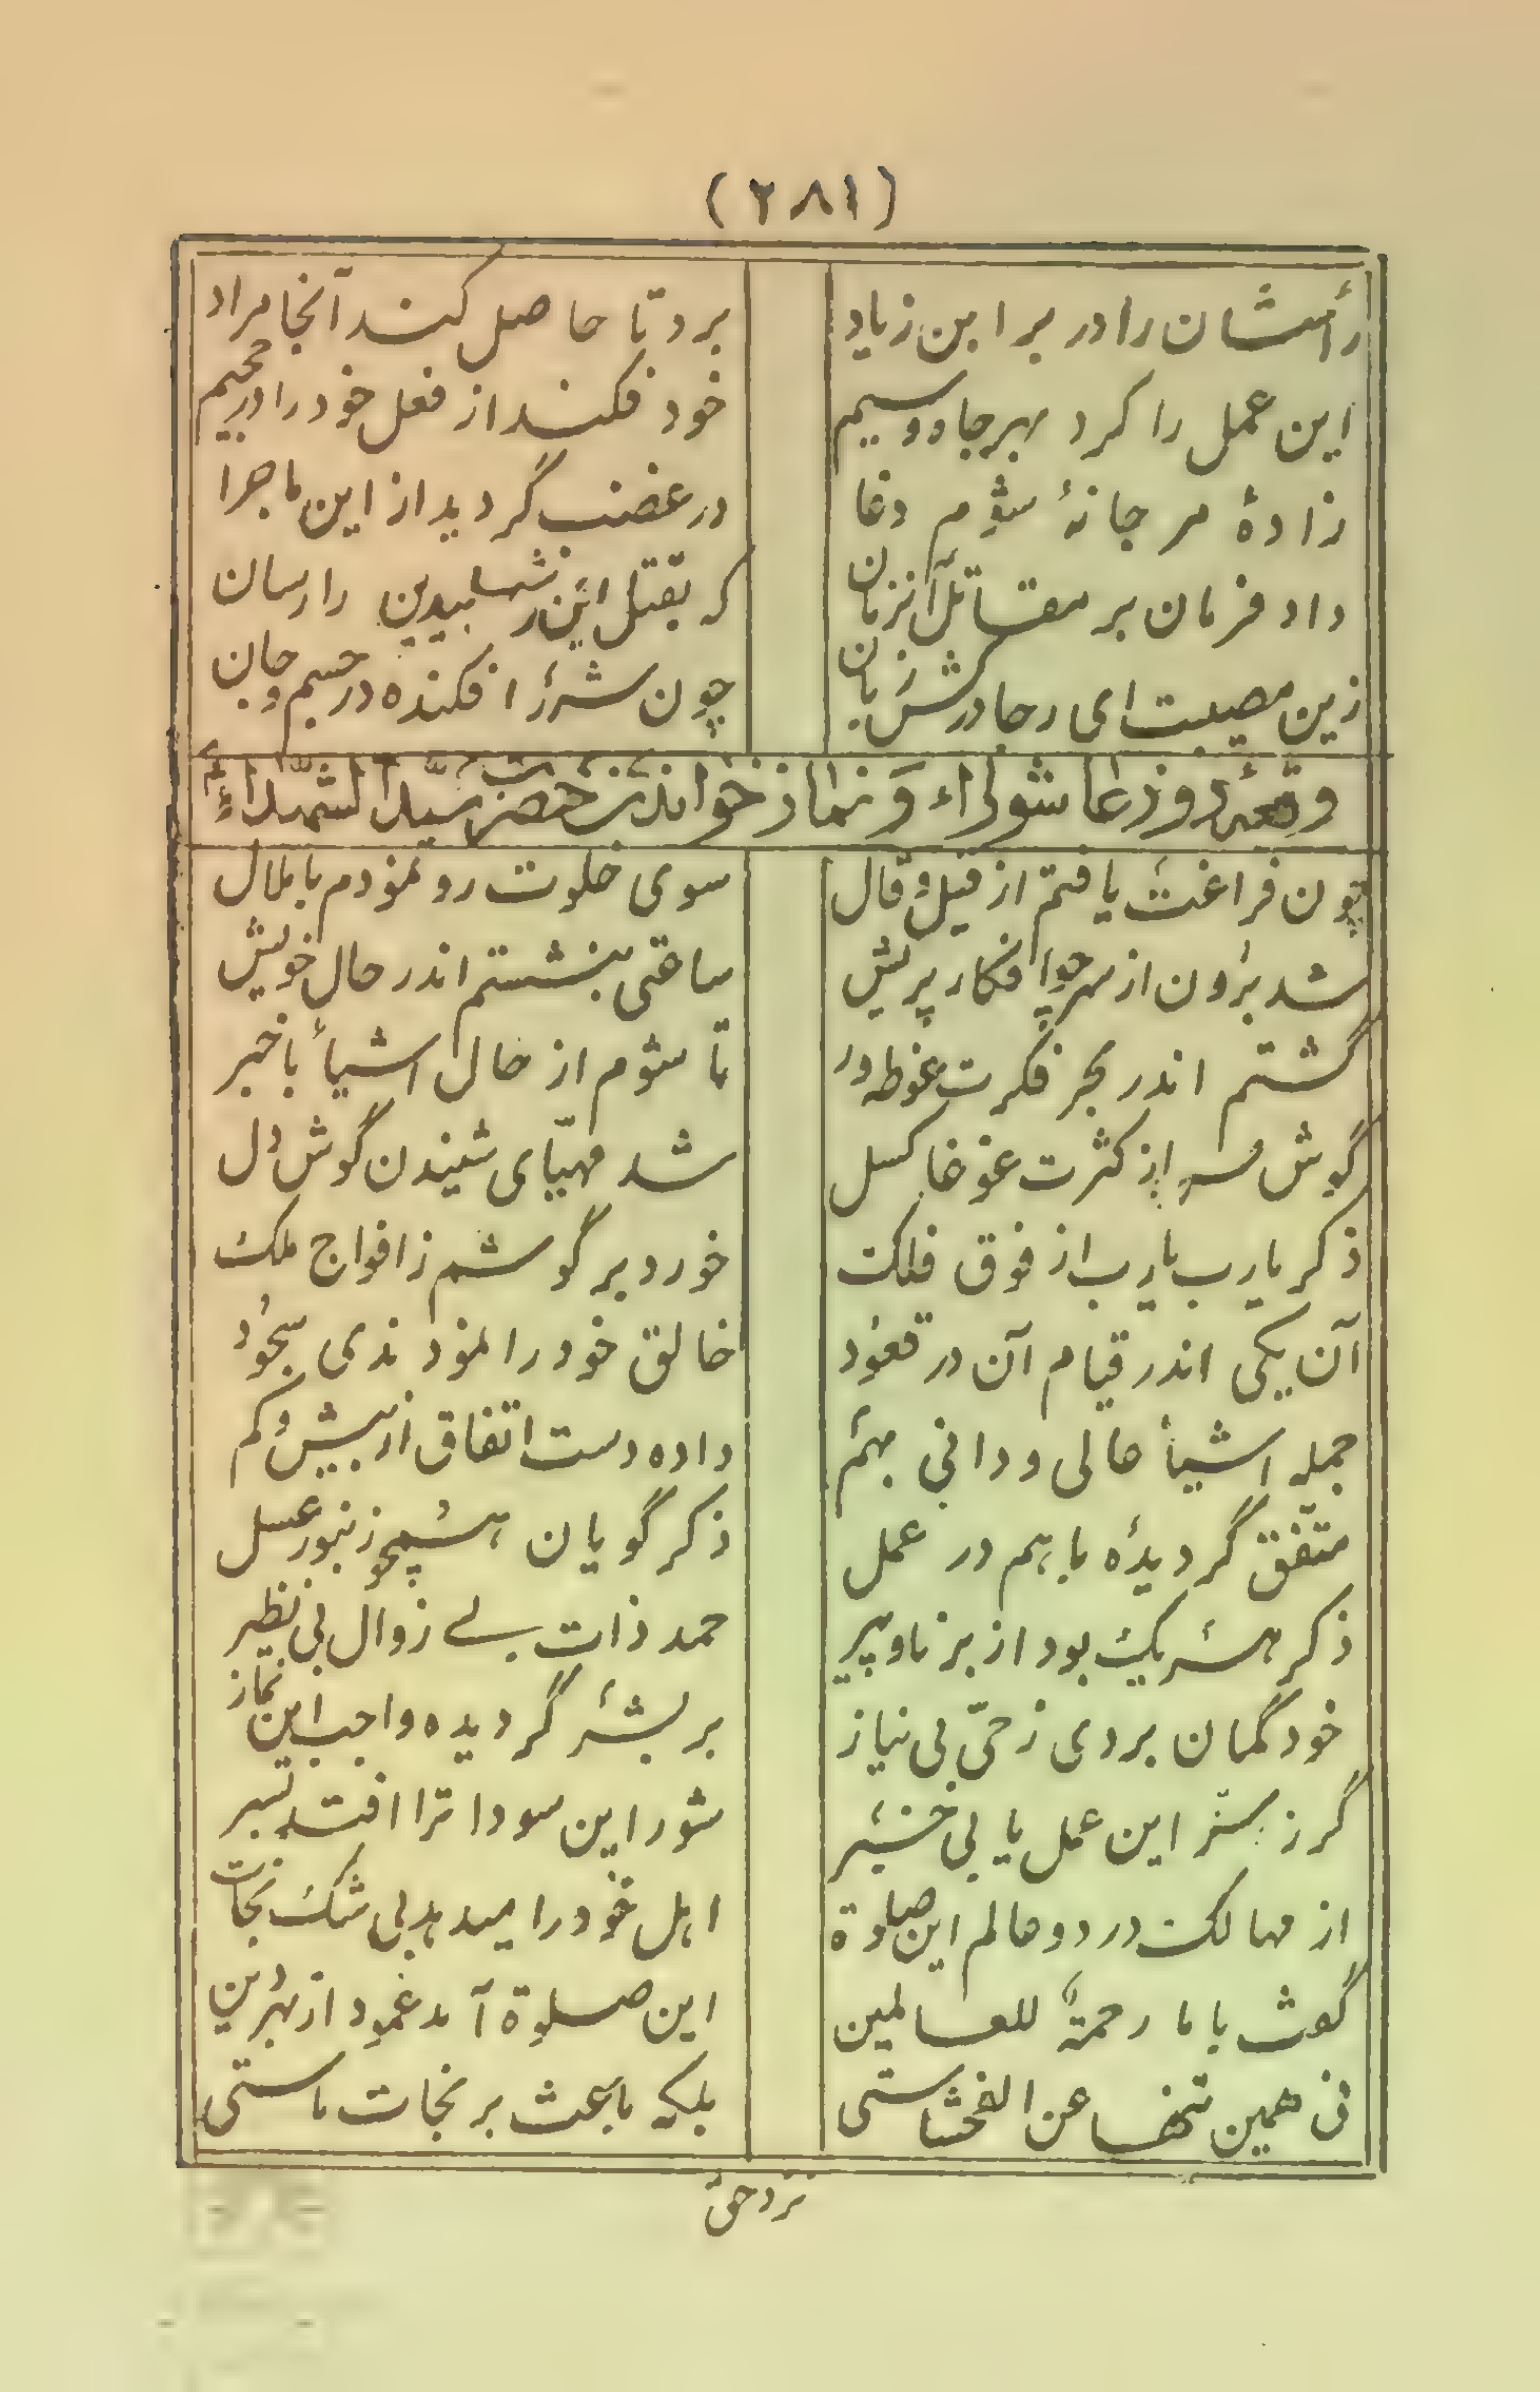 (۲۸۱)
رأسشان را در بر ابن زیاد
برد تا حاصل کند آنجا مراد
این عمل را کرد بهر جاه و سیم
خود فکند از فعل خود را در جحیم
زادهٔ مرجانهٔ شوم دغا
در غضب گردید از این ماجرا
داد فرمان بر مقاتل آنزمان
که بقتل این را رسان
زین مصیبت ای رجا در کش زبان
چون شرر افکنده در جسم و جان
وقعهٔ روز عاشوراء و نماز خواندن حضرت سیدالشهداء ع
چون فراغت یافتم از قیل و قال
سوی خلوت رو نمودم با ملال
شد برون از سر چو افکار پریش
ساعتی بنشستم اندر حال خویش
گشتم اندر بحر فکرت غوطه ور
تا شوم از حال اشیأ با خبر
گوش سر از کثرت غوغا کسل
شد مهیّای شنیدن گوش دل
ذکر یارب یارب از فوق فلک
خورد بر گوشم ز افواج ملک
آن یکی اندر قیام آن در قعود
خالق خود را نمودندی سجود
جمله اشیأ عالی و دانی بهم
داده دست اتفاق از بیش و کم
متّفق گردیده با هم در عمل
ذکر گویان همچو زنبور عسل
ذکر هر یک بود از برنا و پیر
حمد ذات بے زوال بی نظیر
خود گمان بردی ز حیّ بی نیاز
بر بشر گردیده واجب این نماز
گر ز سرّ این عمل یابی خبر
شور این سودا ترا افتد بسر
از مهالک در دو عالم این صلوة
اهل خود را میدهد بی شک نجات
گفت بابا رحمةٌ للعالمین
این صلوة آمد عمود از بهر دین
نی همین تنها عن الفحشاستی
بلکه باعث بر نجات ماستی
نزد حق